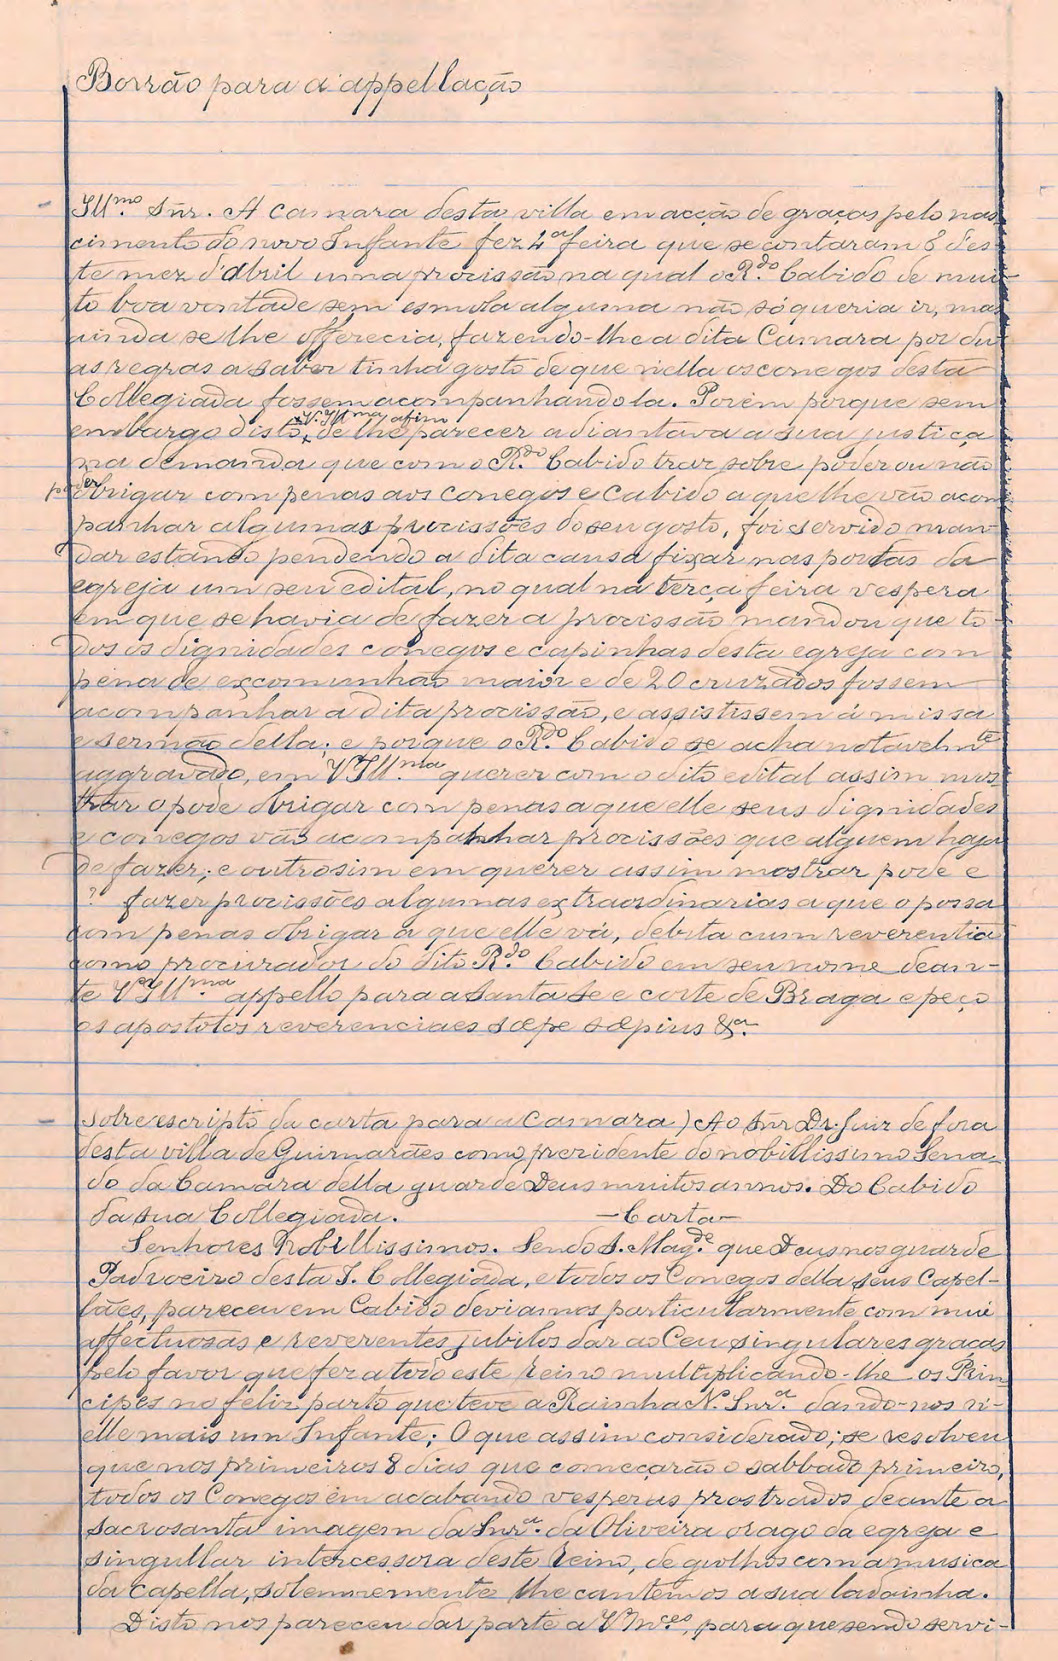 Borrão para a appellação
Illmo. Sñr. A Camara desta villa em acção de graças pelo nas-
cimento do novo Infante fez 4ª feira que se contaram 8 des-
te mez d'Abril uma procissão na qual o R.do Cabido de mui-
to boa vontade sem esmola alguma não só queria ir, mas
ainda se lhe offerecia, fazendo-lhe a dita Camara por du-
as regras a saber tinha gosto de que nella os conegos desta
Collegiada fossem acompanhando la. Porém porque sem
embargo disto, de lhe parecer adiantava a sua justiça
na demanda que com o R.do Cabido traz sobre poder ou não
poder obrigar com penas aos conegos e Cabido a que lhe vão acom
panhar algumas procissões do seu gosto, foi servido man-
dar estando pendendo a dita causa fixar nas portas da
egreja um seu edital, no qual na terça feira vespera
em que se havia de fazer a procissão mandou que to-
dos os dignidades conegos e capinhas desta egreja com
pena de excomunhão maior e de 20 cruzados fossem
acompanhar a dita procissão, e assistissem á missa
e sermão della; e porque o R.do Cabido se acha notavelmte
aggravado, em V Illma querer com o dito edital assim mos
trar o pode obrigar com penas a que elle seus dignidades
e conegos vão acompanhar procissões que alguem haja
de fazer; e outrosim em querer assim mostrar pode e
? fazer procissões algumas extraordinarias a que o possa
com penas obrigar a que elle vá, debita cum reverentia
como procurador do dito R.do Cabido em seu nome dean-
te V Illma appello para a Santa Se e corte de Braga e peço
os apostolos reverenciaes sæpe sæpius &a.
Sobreescripto da carta para a Camara) Ao Sñr Dr. Juiz de fora
desta villa de Guimarães como prezidente do nobillissimo Sena-
do da Camara della guarde Deus muitos annos. Do Cabido
da sua Collegiada. — Carta —
Senhores Nobillissimos. Sendo S. Mag.de que Deus nos guarde
Padroeiro desta I. Collegiada, e todos os Conegos della seus Capel-
lães, pareceu em Cabido deviamos particularmente com mui
affectuosas e reverentes jubilos dar ao Ceu singulares graças
pelo favor que fez a todo este Reino multiplicando-lhe os Prin
cipes no feliz parto que teve a Rainha N. Snr.a dando-nos n'-
elle mais um Infante; O que assim considerado; se resolveu
que nos primeiros 8 dias que começarão o sabbado primeiro,
todos os Conegos em acabando vesperas prostrados deante a
sacrosanta imagem da Snra. da Oliveira orago da egreja e
singullar intercessora deste Reino, de giolhos com a musica
da capella, solemnemente lhe cantemos a sua ladainha.
Disto nos pareceu dar parte a V Mces, para que sendo servi-